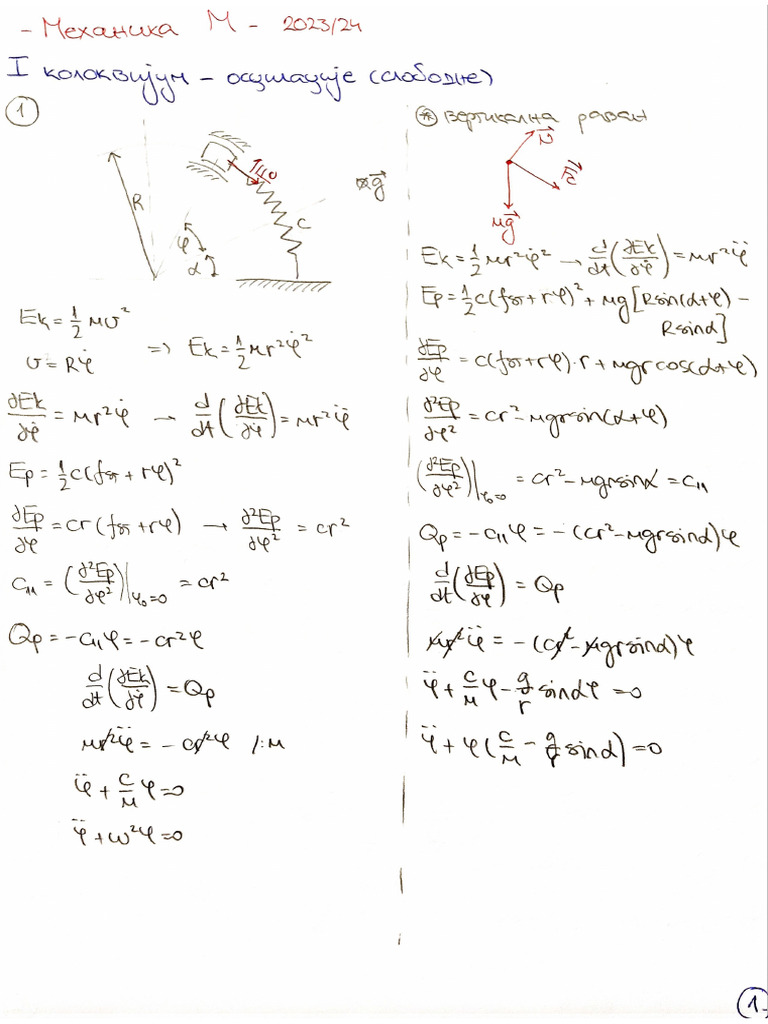 - Механика М - 2023/24
I колоквијум - осцилације (слободне)
1
R
φ
α
c
g⃗
Ek = 1/2 mv²
v = Rφ̇
=> Ek = 1/2 mr²φ̇²
∂Ek/∂φ̇ = mr²φ̇ → d/dt(∂Ek/∂φ̇) = mr²φ̈
Ep = 1/2 c(fsт + rφ)²
∂Ep/∂φ = cr(fsт + rφ) → ∂²Ep/∂φ² = cr²
c₁₁ = (∂²Ep/∂φ²)|φ₀=0 = cr²
Qp = -c₁₁φ = -cr²φ
d/dt(∂Ek/∂φ̇) = Qp
mr²φ̈ = -cr²φ /:m
φ̈ + c/m φ = 0
φ̈ + ω²φ = 0
* вертикална раван
N⃗
F⃗c
mg⃗
Ek = 1/2 mr²φ̇² → d/dt(∂Ek/∂φ̇) = mr²φ̈
Ep = 1/2 c(fsт + rφ)² + mg[Rsin(α+φ) -
Rsinα]
∂Ep/∂φ = c(fsт + rφ)·r + mgrcos(α+φ)
∂²Ep/∂φ² = cr² - mgrsin(α+φ)
(∂²Ep/∂φ²)|φ₀=0 = cr² - mgrsinα = c₁₁
Qp = -c₁₁φ = -(cr² - mgrsinα)φ
d/dt(∂Ep/∂φ̇) = Qp
mr²φ̈ = -(cr² - mgrsinα)φ
φ̈ + c/m φ - g/r sinαφ = 0
φ̈ + φ(c/m - g/r sinα) = 0
1.